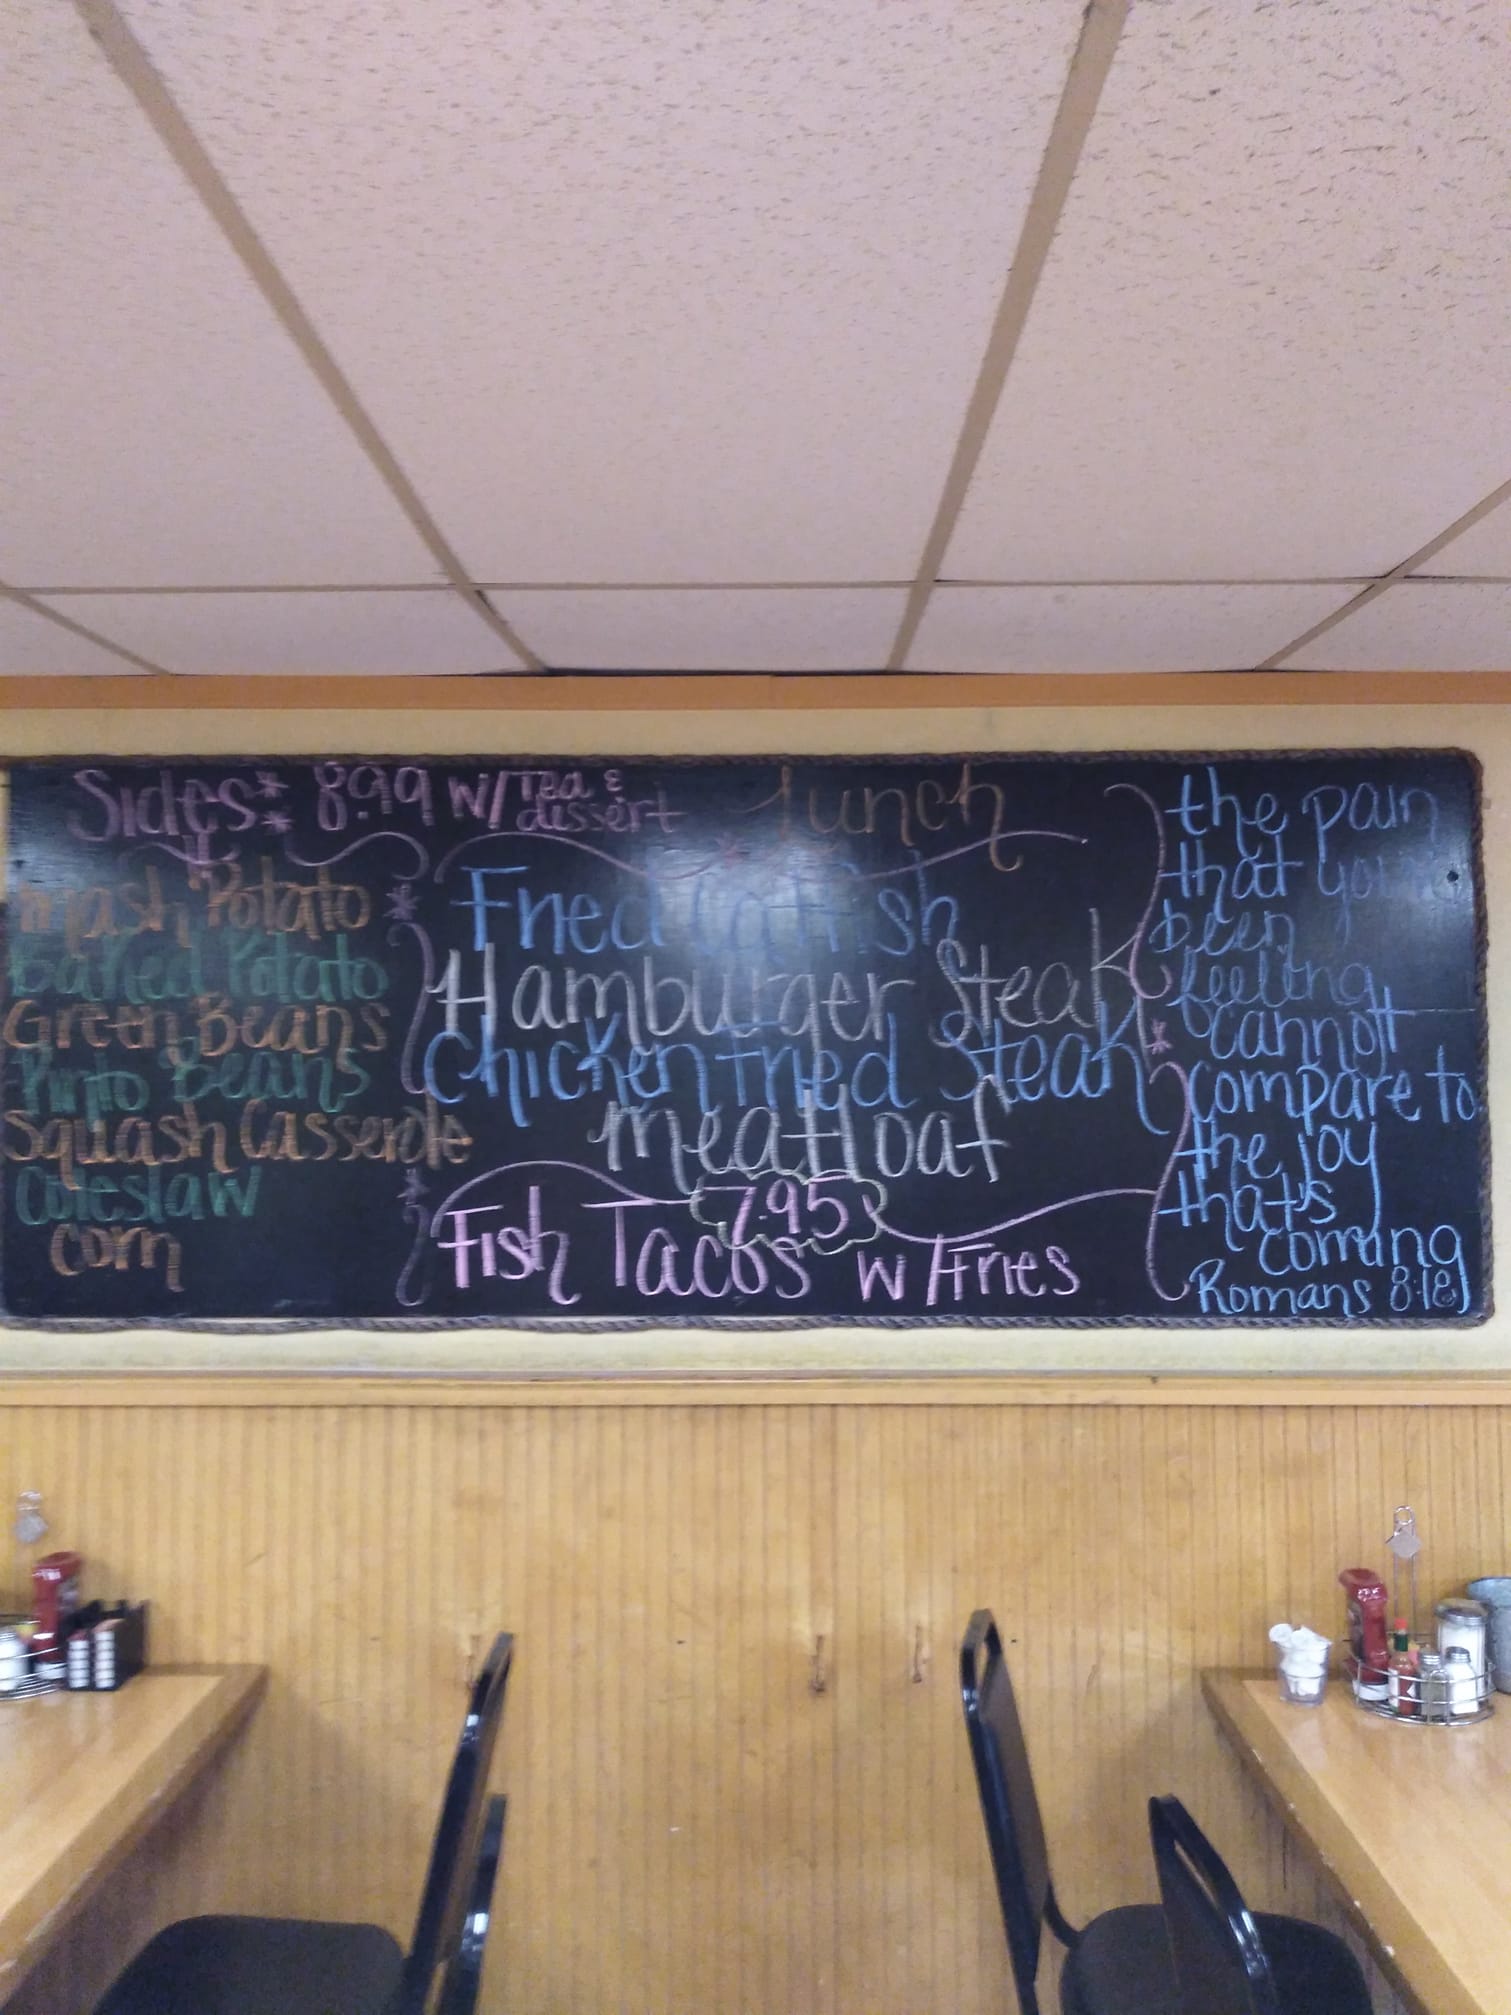 Sides * 8.99 w/ Tea & dessert
Mash Potato
Baked Potato
Green Beans
Pinto Beans
Squash Casserole
Coleslaw
Corn
Lunch
Fried Catfish
Hamburger Steak
Chicken Fried Steak
Meatloaf
7.95
Fish Tacos w/ Fries
the pain
that you
been
feeling
cannott
compare to
the joy
that's
coming
Romans 8:18